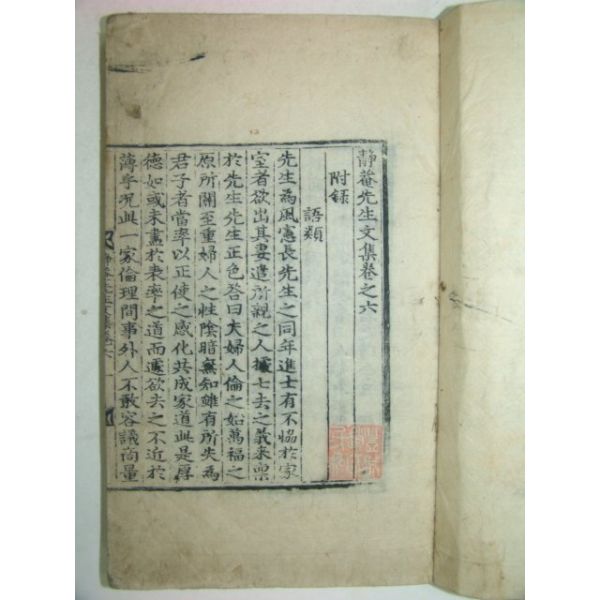 靜菴先生文集卷之六
附錄
語類
先生爲風憲長先生之同年進士有不協於家
室者欲出其妻遣所親之人據七去之義來稟
於先生先生正色答曰夫婦人倫之始萬福之
原所關至重婦人之性陰暗無知雖有所失爲
君子者當率以正使之感化共成家道此是厚
德如或未盡於表率之道而遽欲去之不近於
薄乎况此一家倫理間事外人不敢容議商量